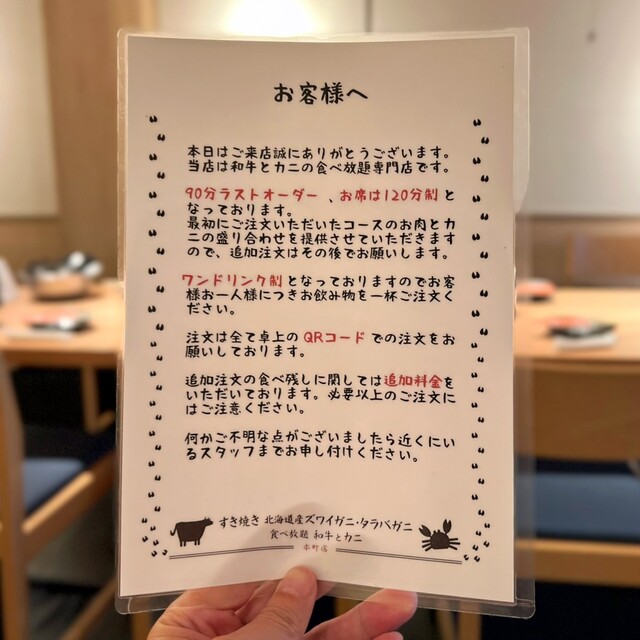 お客様へ
本日はご来店誠にありがとうございます。
当店は和牛とカニの食べ放題専門店です。
90分ラストオーダー 、お席は120分制と
なっております。
最初にご注文いただいたコースのお肉とカ
ニの盛り合わせを提供させていただきます
ので、追加注文はその後でお願いします。
ワンドリンク制となっておりますのでお客
様お一人様につきお飲み物を一杯ご注文く
ださい。
注文は全て卓上のQRコードでの注文をお
願いしております。
追加注文の食べ残しに関しては追加料金を
いただいております。必要以上のご注文に
はご注意ください。
何かご不明な点がございましたら近くにい
るスタッフまでお申し付けください。
すき焼き 北海道産ズワイガニ・タラバガニ
食べ放題 和牛とカニ
本町店